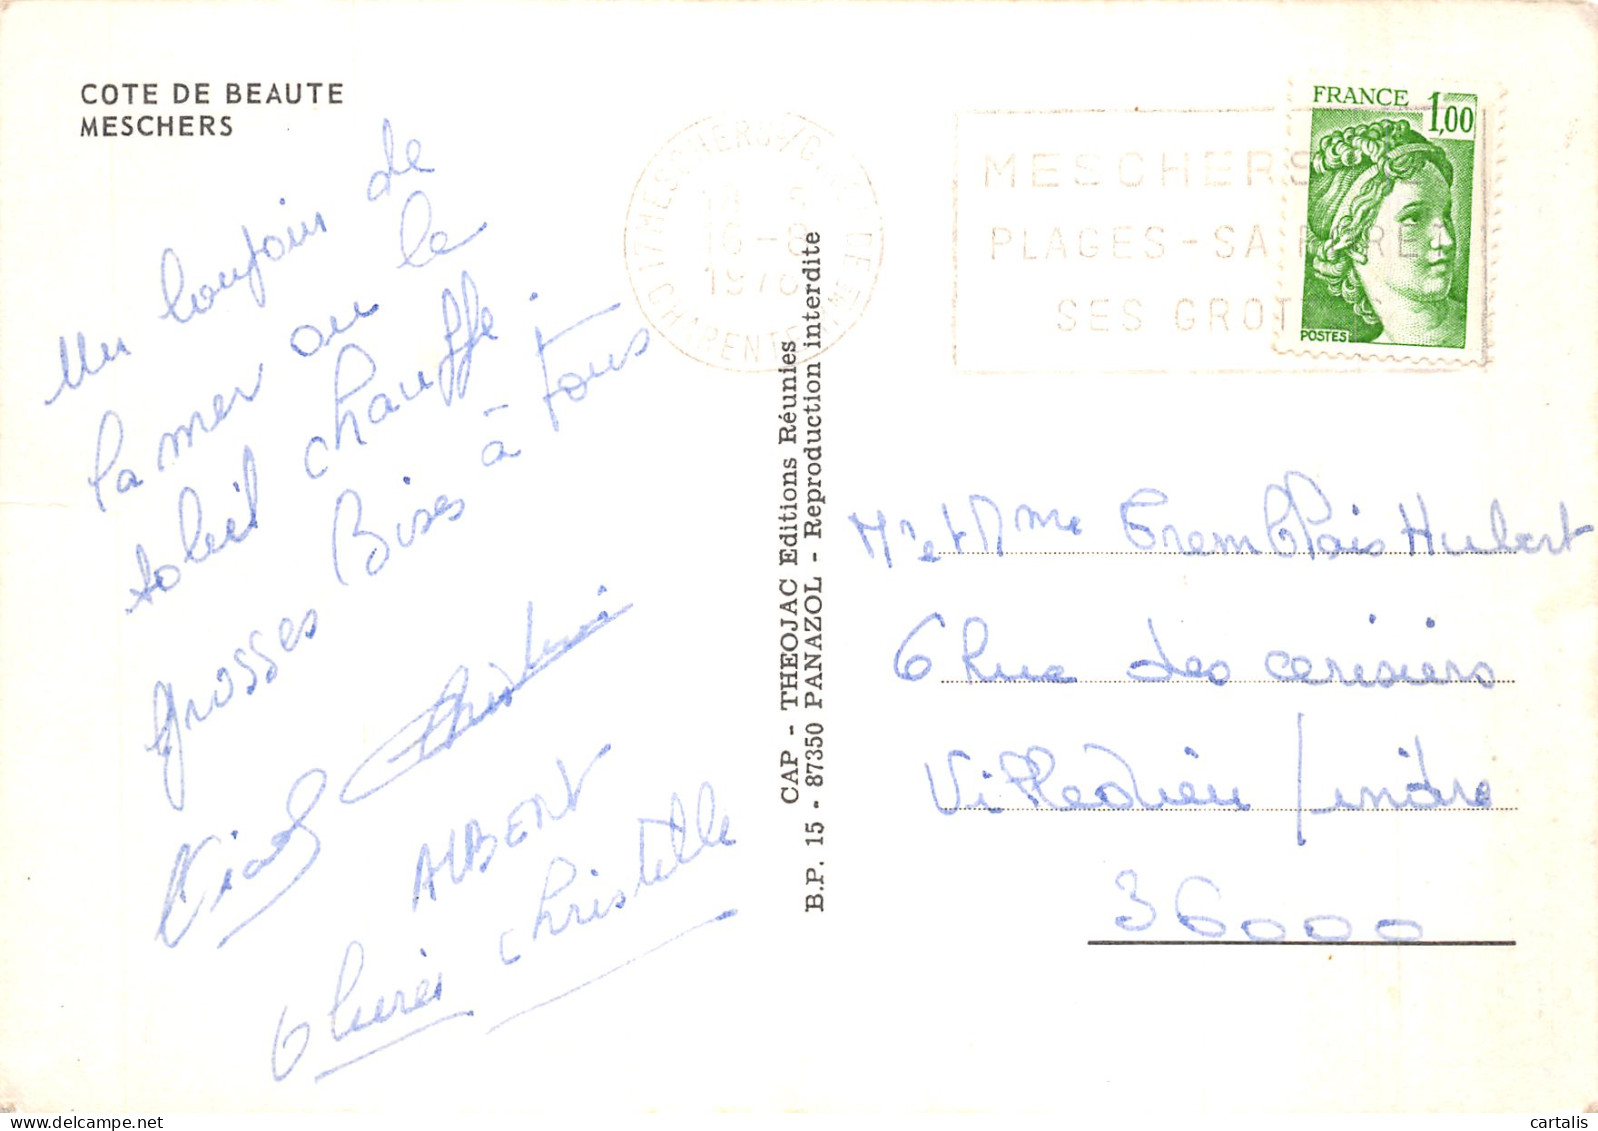 COTE DE BEAUTE
MESCHERS
Un bonjour de
la mer ou le
soleil chauffe.
Grosses Bises à tous
ALBERT
christelle
CAP - THEOJAC Editions Réunies
B.P. 15 - 87350 PANAZOL - Reproduction interdite
17 MESCHERS
16-8
1978
CHARENTE
MESCHERS
PLAGES - SA
SES GROT
FRANCE
1,00
POSTES
Mr et Mme Tremblais Hubert
6 Rue des cerisiers
Villedieu / indre
36000
cartalis